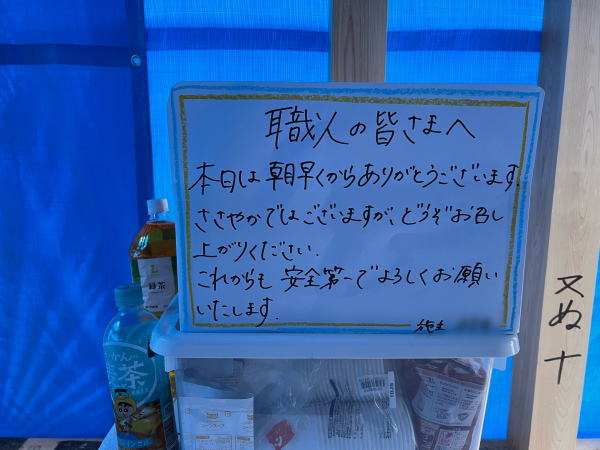 職人の皆さまへ
本日は朝早くからありがとうございます。
ささやかではございますが、どうぞお召し
上がりください.
これからも安全第一でよろしくお願い
いたします.
施主
緑茶
茶
又ぬ十